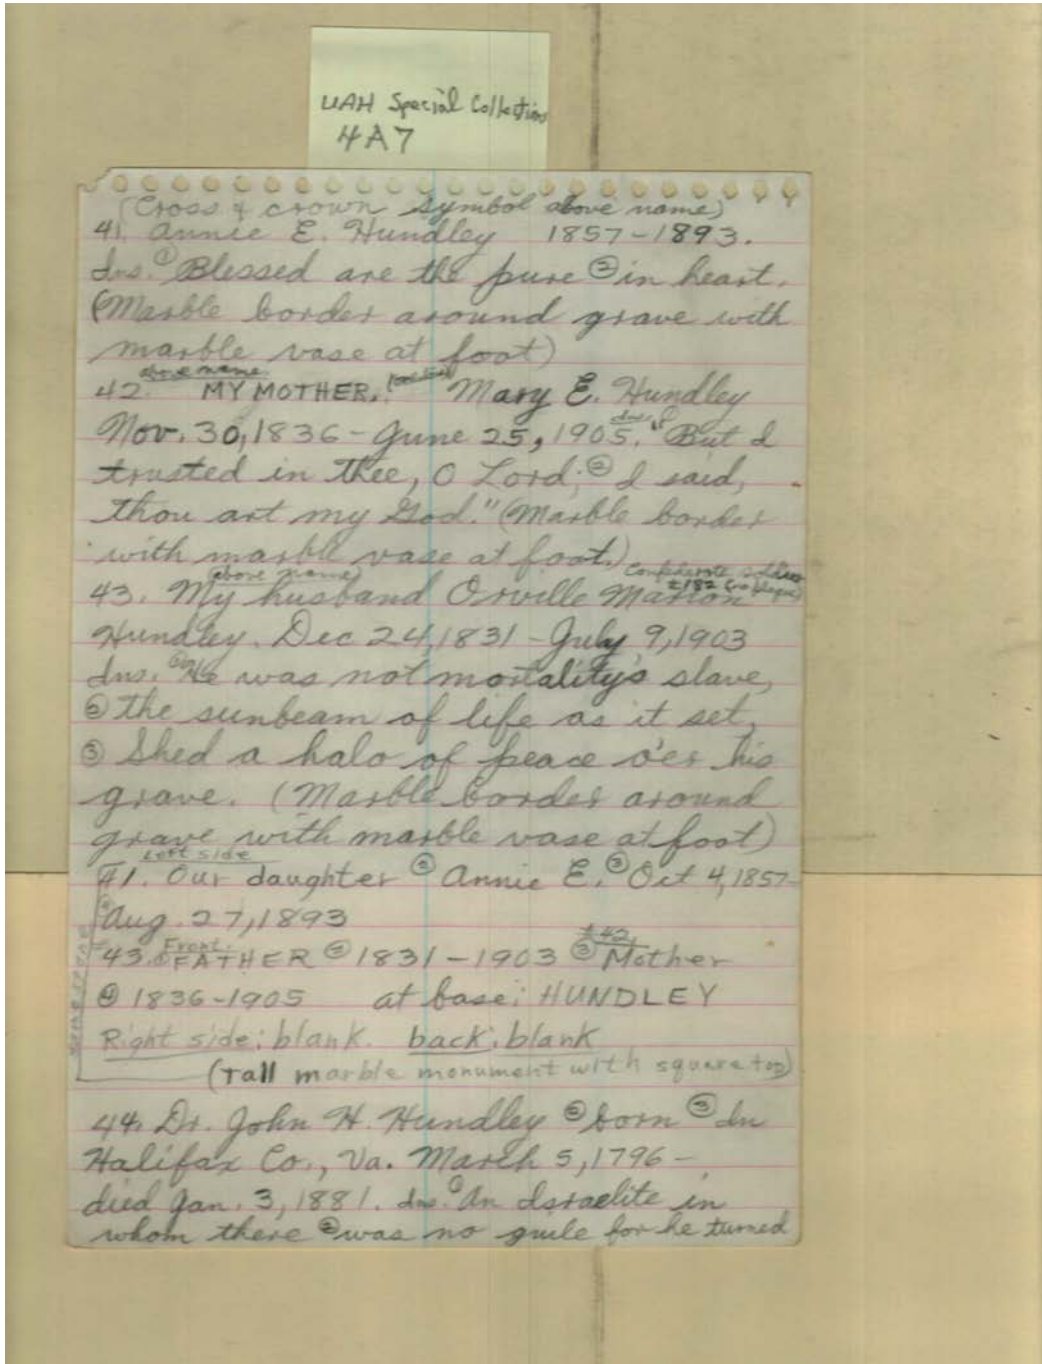 UAH Special Collections
4A7
(Cross & crown symbol above name)
41. Annie E. Hundley 1857-1893.
Ins. ① Blessed are the pure ② in heart.
(Marble border around grave with
marble vase at foot)
above name
42. MY MOTHER. Mary E. Hundley
Nov. 30, 1836 - June 25, 1905. Ins. ① "But I
trusted in thee, O Lord; ② I said,
thou art my God." (Marble border
with marble vase at foot.)
(above name) Confederate soldier
43. My husband Orville Marion
Hundley. Dec 24, 1831 - July 9, 1903
Ins. ① He was not mortality's slave,
② The sunbeam of life as it set,
③ Shed a halo of peace o'er his
grave. (Marble border around
grave with marble vase at foot)
Left side
#1. Our daughter ② Annie E. ③ Oct 4, 1857-
④ Aug. 27, 1893
Front. #42.
#43. ① FATHER ② 1831-1903 ③ Mother
④ 1836-1905 at base: HUNDLEY
Right side: blank. back: blank
(Tall marble monument with square top)
44. Dr. John H. Hundley ② born ③ In
Halifax Co., Va. March 5, 1796 -
died Jan. 3, 1881. Ins. ① An Israelite in
whom there ② was no guile for he turned